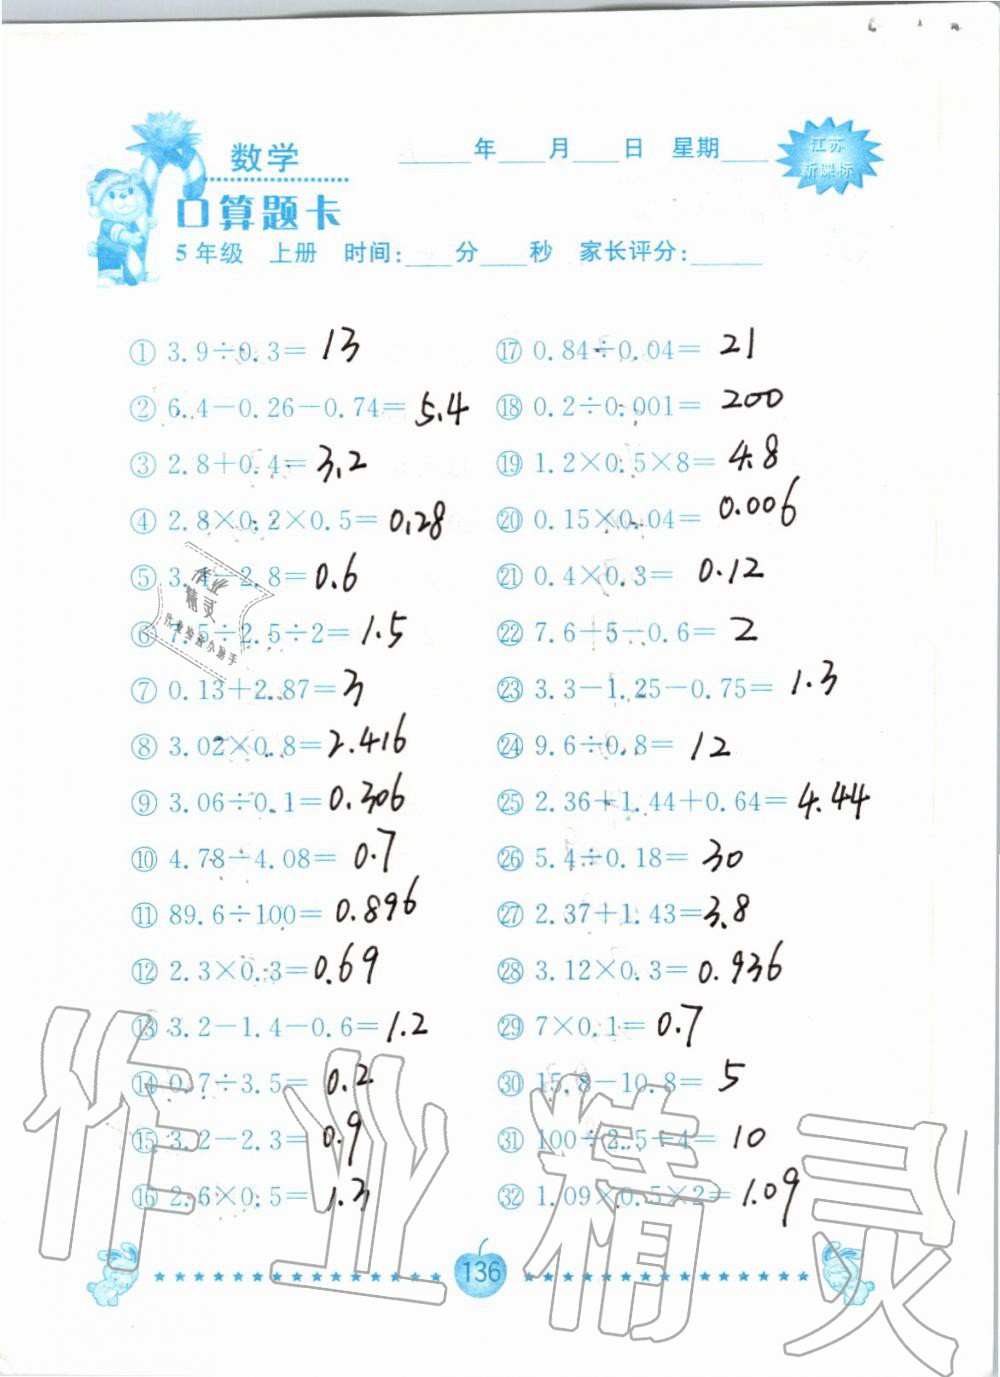 数学
____年____月____日 星期____
江苏
新课标
口算题卡
5年级 上册 时间:____分____秒 家长评分:______
① 3.9÷0.3= 13
② 6.4-0.26-0.74= 5.4
③ 2.8+0.4= 3.2
④ 2.8×0.2×0.5= 0.28
⑤ 3.4-2.8= 0.6
⑥ 7.5÷2.5÷2= 1.5
⑦ 0.13+2.87= 3
⑧ 3.02×0.8= 2.416
⑨ 3.06÷0.1= 0.306
⑩ 4.78-4.08= 0.7
⑪ 89.6÷100= 0.896
⑫ 2.3×0.3= 0.69
⑬ 3.2-1.4-0.6= 1.2
⑭ 0.7÷3.5= 0.2
⑮ 3.2-2.3= 0.9
⑯ 2.6×0.5= 1.3
⑰ 0.84÷0.04= 21
⑱ 0.2÷0.001= 200
⑲ 1.2×0.5×8= 4.8
⑳ 0.15×0.04= 0.006
㉑ 0.4×0.3= 0.12
㉒ 7.6-5-0.6= 2
㉓ 3.3-1.25-0.75= 1.3
㉔ 9.6÷0.8= 12
㉕ 2.36+1.44+0.64= 4.44
㉖ 5.4÷0.18= 30
㉗ 2.37+1.43= 3.8
㉘ 3.12×0.3= 0.936
㉙ 7×0.1= 0.7
㉚ 15.8-10.8= 5
㉛ 100÷2.5÷4= 10
㉜ 1.09×0.5×2= 1.09
作业
精灵
作业检查小助手
作业精灵
136